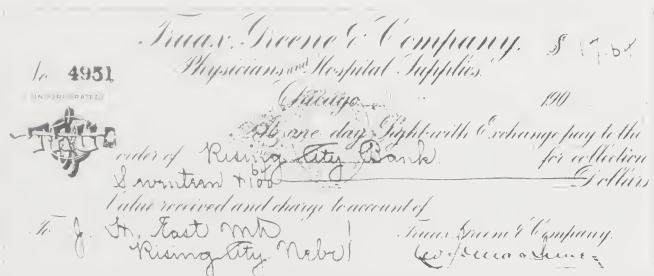 Truax, Greene & Company.
$ 17.64
No 4951
Physicians and Hospital Supplies.
INCORPORATED
Chicago 190
TRUAX
At one day Sight with Exchange pay to the
order of Rising City Bank for collection
Seventeen & 64/100 Dollars
Value received and charge to account of
To J. H. East MD
Rising City Nebr
Truax, Greene & Company.